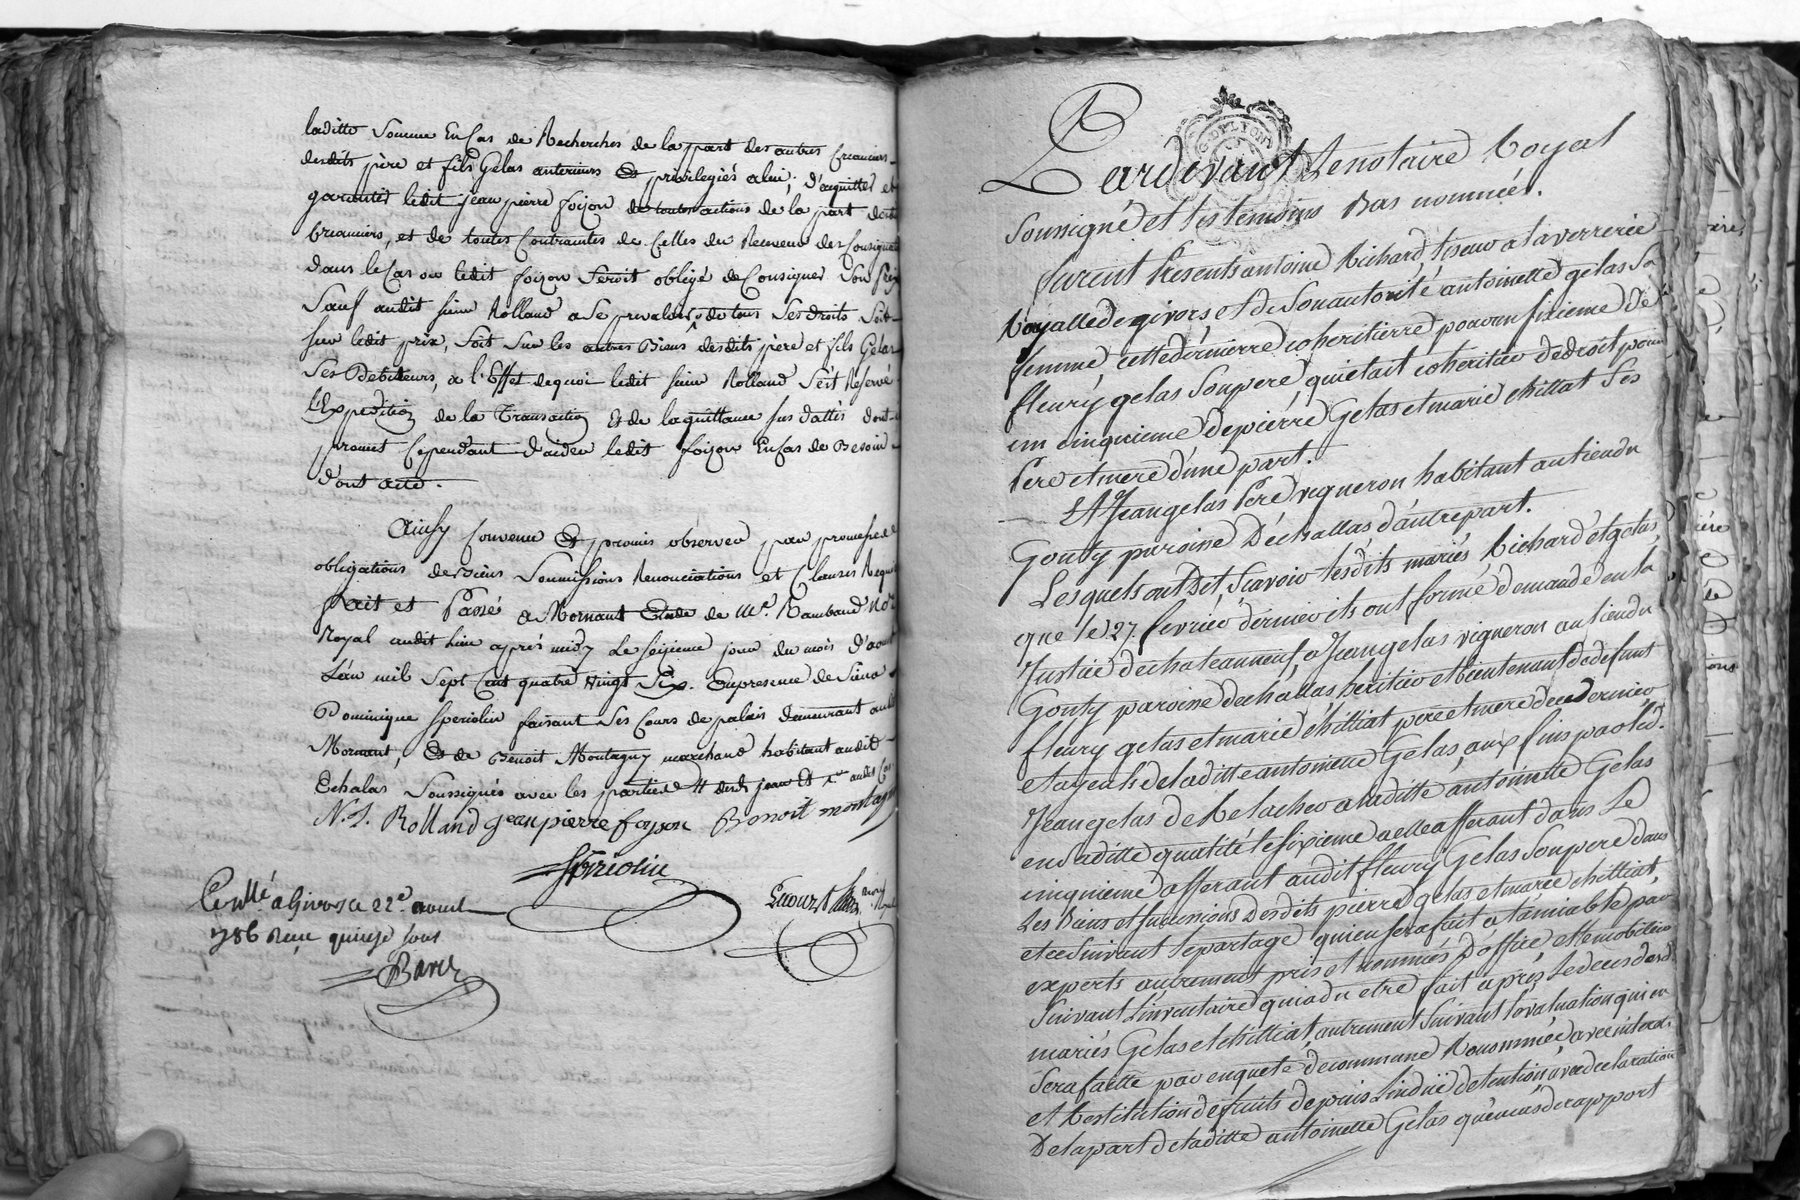 laditte Somme En Cas de Recherches de la part des autres Creanciers
desdits père et fils Gelas anterieurs Et privilegiés a lui, d'aquitter et
garentir ledit jean pierre foison de toutes actions de la part desdits
Creanciers, et de toutes Contraintes de Celles du Receveur des Consignations
dans le Cas ou ledit foizon Seroit obligé de Consigner Son prix
Sauf audit Sieur Rolland a Se prevaloir de tous Ses droits Soit
Sur ledit prix, Soit Sur les autres Biens desdits père et fils Gelas
Ses Debiteurs, a l'Effet de quoi ledit Sieur Rolland S'est Reservé
l'Expedition de la Transaction Et de la quittance Sus dattés dont il
promet Cependant d'aider ledit foizon En Cas de Besoin
dont acte.
Ainsy Convenu Et promis observer par promesses
obligations de biens Soumissions Renonciations et Clauses Requises
fait et Passé a Mornant Etude de Me. Rambaud Nore
Royal audit lieu après midy Le Seizieme jour du mois d'aout
L'an mil Sept Cent quatre Vingt Six. En presence de Sieur
Dominique Speriolin faisant Ses Cours de palais demeurant audit
Mornant, Et de Benoit Montagny marchand habitant audit
Echalas Soussignés avec les parties
N. J. Rolland jean pierre foyson Benoit montagny
Speriolin
Conllé a Givors le 22e. aoust
1786 Reçu quinze Sous
Barel
G. DE LYON
Pardevant Le notaire Royal
Soussigné et les temoins Bas nommés.
furent Presents antoine Richard tiseur a la verrerie
Royalle de givors et de Son autorité antoinette gelas Sa
femme, cette derniere coheritierre pour un sixieme de
fleury gelas Son pere, qui etait coheritier de droit pour
un cinquieme de pierre Gelas et marie chilliat Ses
Pere et mere d'une part.
Et Jean gelas Pere vigneron habitant au lieu du
Gonty paroisse D'échallas, d'autre part.
Lesquels ont Dit, Scavoir lesdits mariés Richard et gelas,
que le 27. fevrier dernier ils ont formé demande en la
Justice de chateauneuf, a Jean gelas vigneron au lieu du
Gonty paroisse dechallas heritier et bientenant de defunt
fleury gelas et marie chilliat pere et mere de ce dernier
et ayeuls de laditte antoinette Gelas, aux fins par led.
Jean gelas de Relacher a laditte antoinette Gelas
en saditte qualité le sixieme a elle afferant dans le
cinquieme afferant audit fleury Gelas Son pere dans
Les Biens et Successions Desdits pierre gelas et marie chilliat,
et ce Suivant le partage qui en sera fait a l'amiable par
experts autrement pris et nommés d'office et le mobilier
Suivant L'inventaire qui a du etre fait après le deces desd.
mariés Gelas et chilliat, autrement Suivant l'evaluation qui en
Sera faitte par enquete de commune Renommée avec interets
et Restitution de fruits depuis L'indue detention avec declaration
De la part de laditte antoinette Gelas qu'en cas de rapport